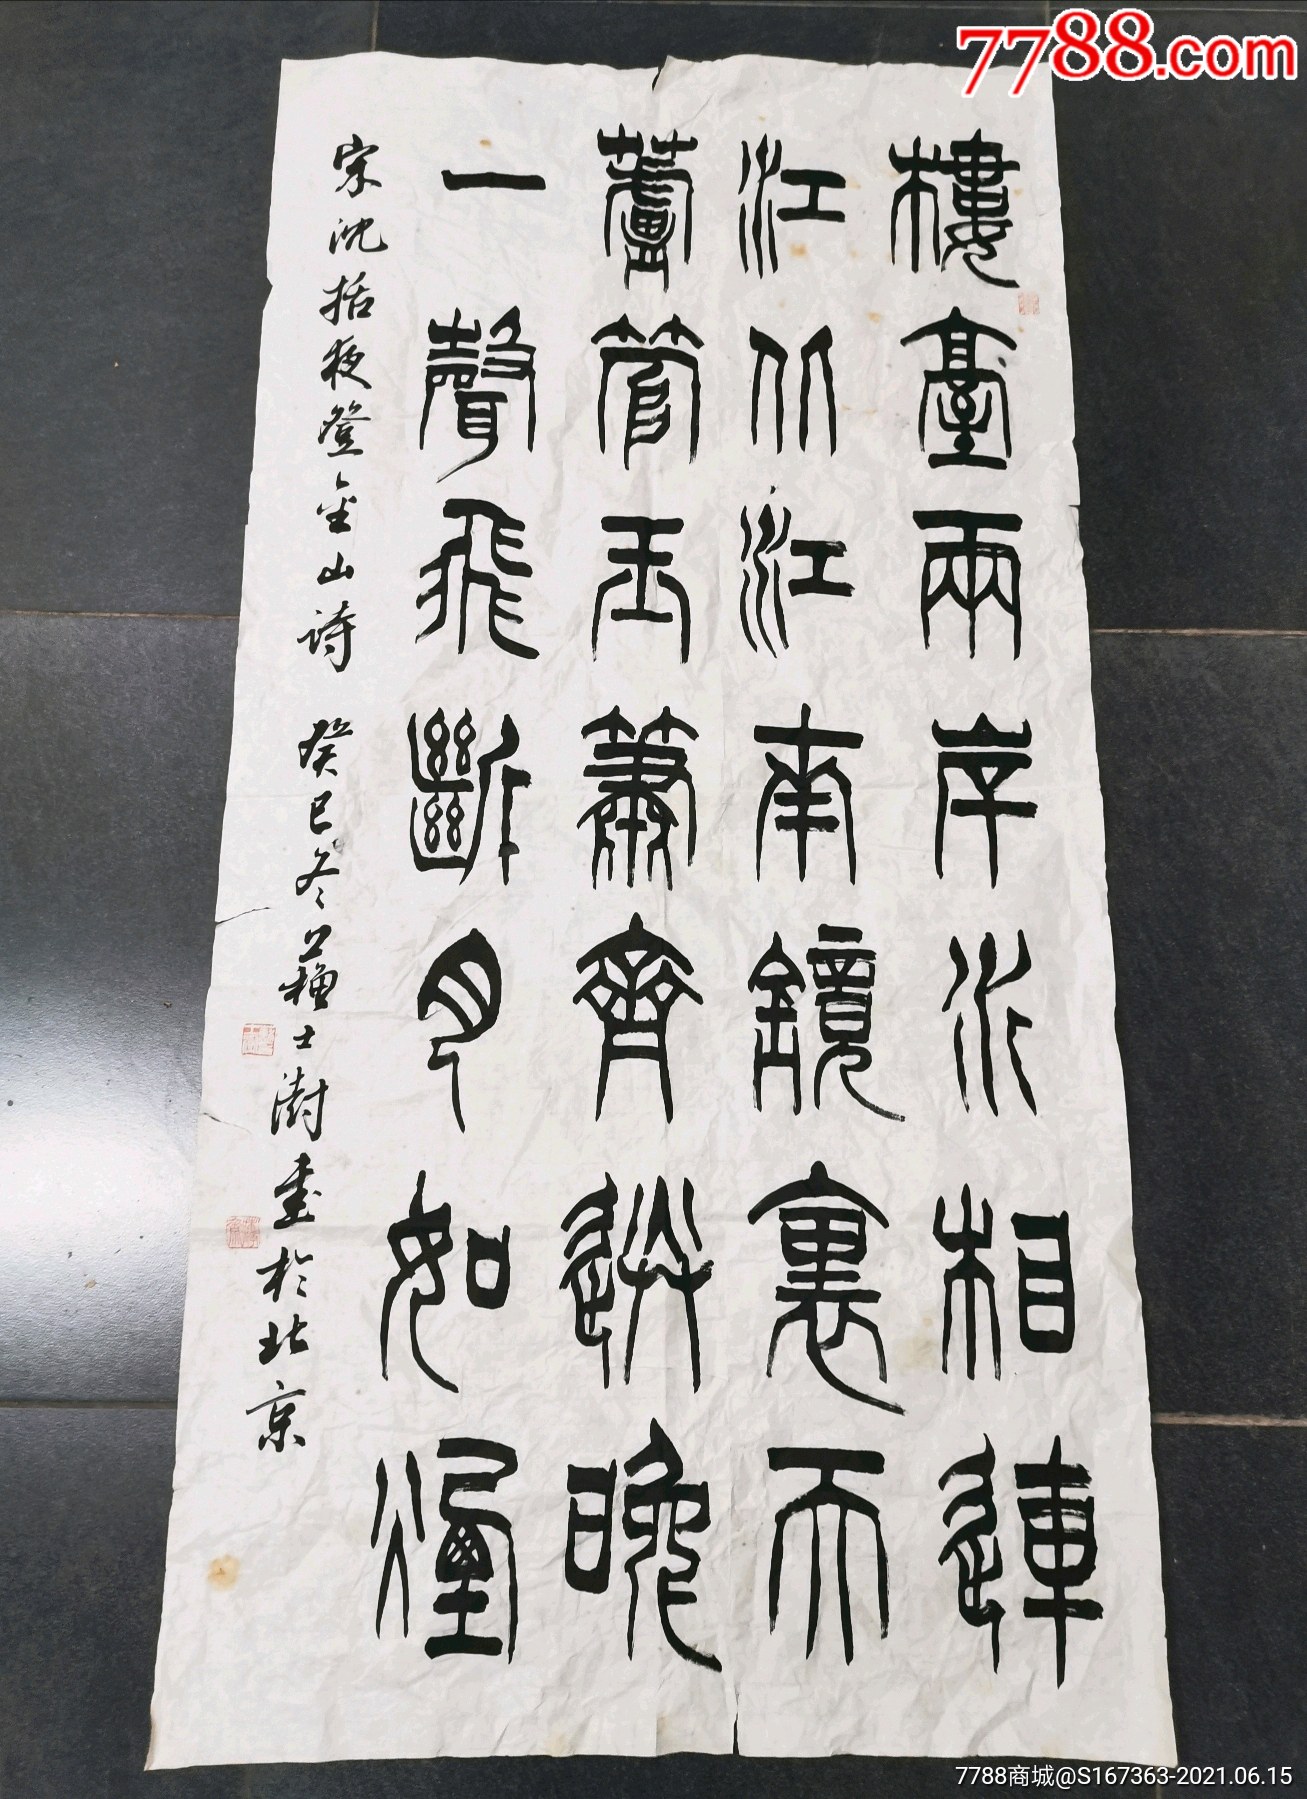 7788.com
樓臺兩岸水相連
江北江南鏡裏天
蘆管玉簫齊送晚
一聲飛斷月如煙
宋沈括夜登金山詩 癸巳冬蘇士澍書於北京
7788商城@S167363-2021.06.15